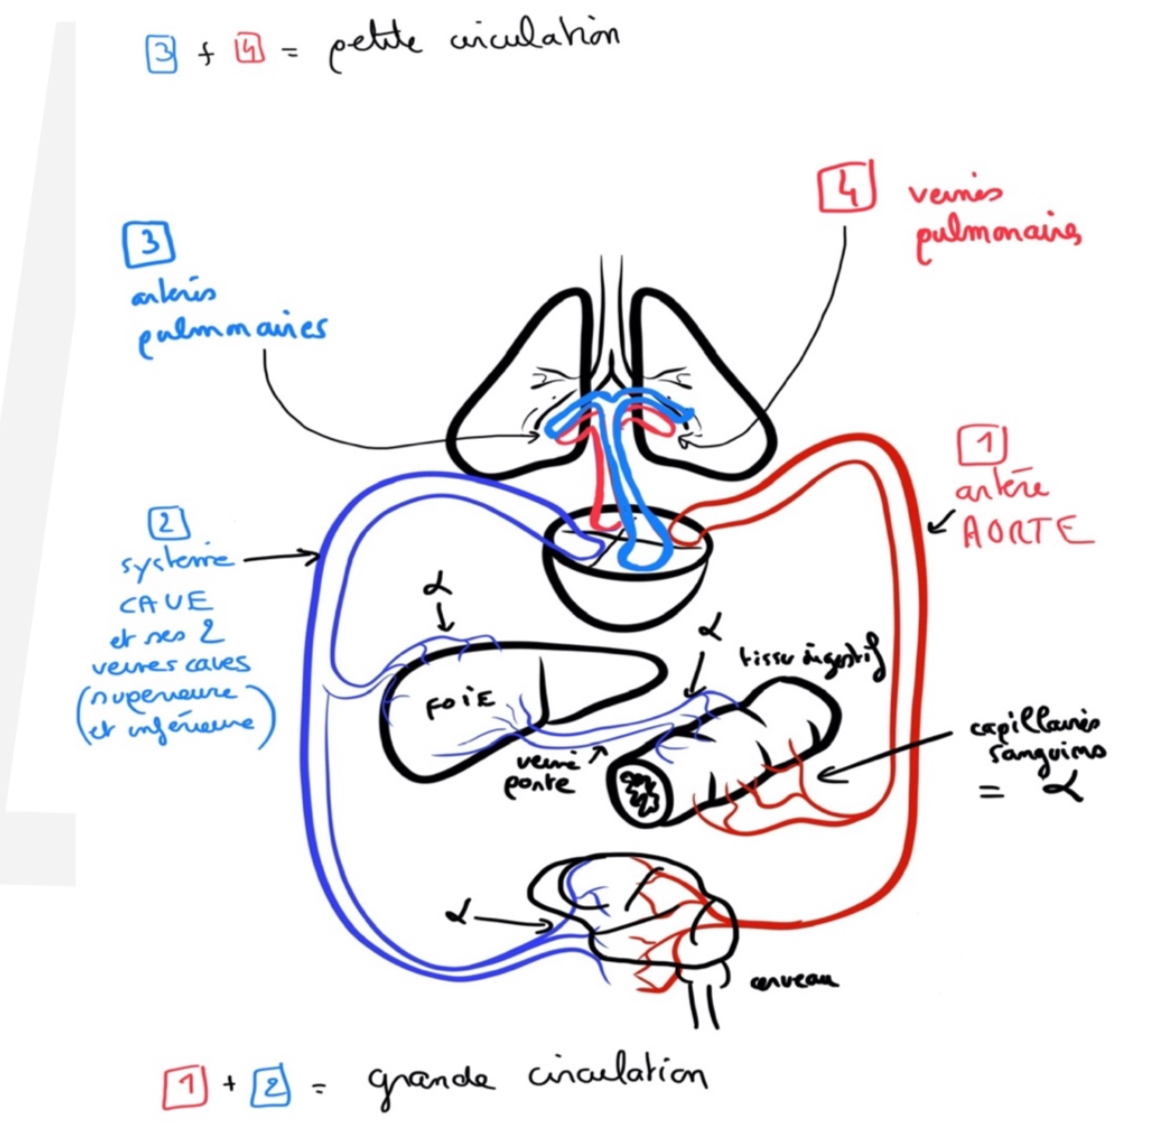 3 + 4 = petite circulation
4 veines
pulmonaires
3
artères
pulmonaires
1
artère
AORTE
2
système
CAVE
et ses 2
veines caves
(supérieure
et inférieure)
α
α
tissu digestif
FOIE
capillaires
sanguins
= α
veine
porte
α
cerveau
1 + 2 = grande circulation